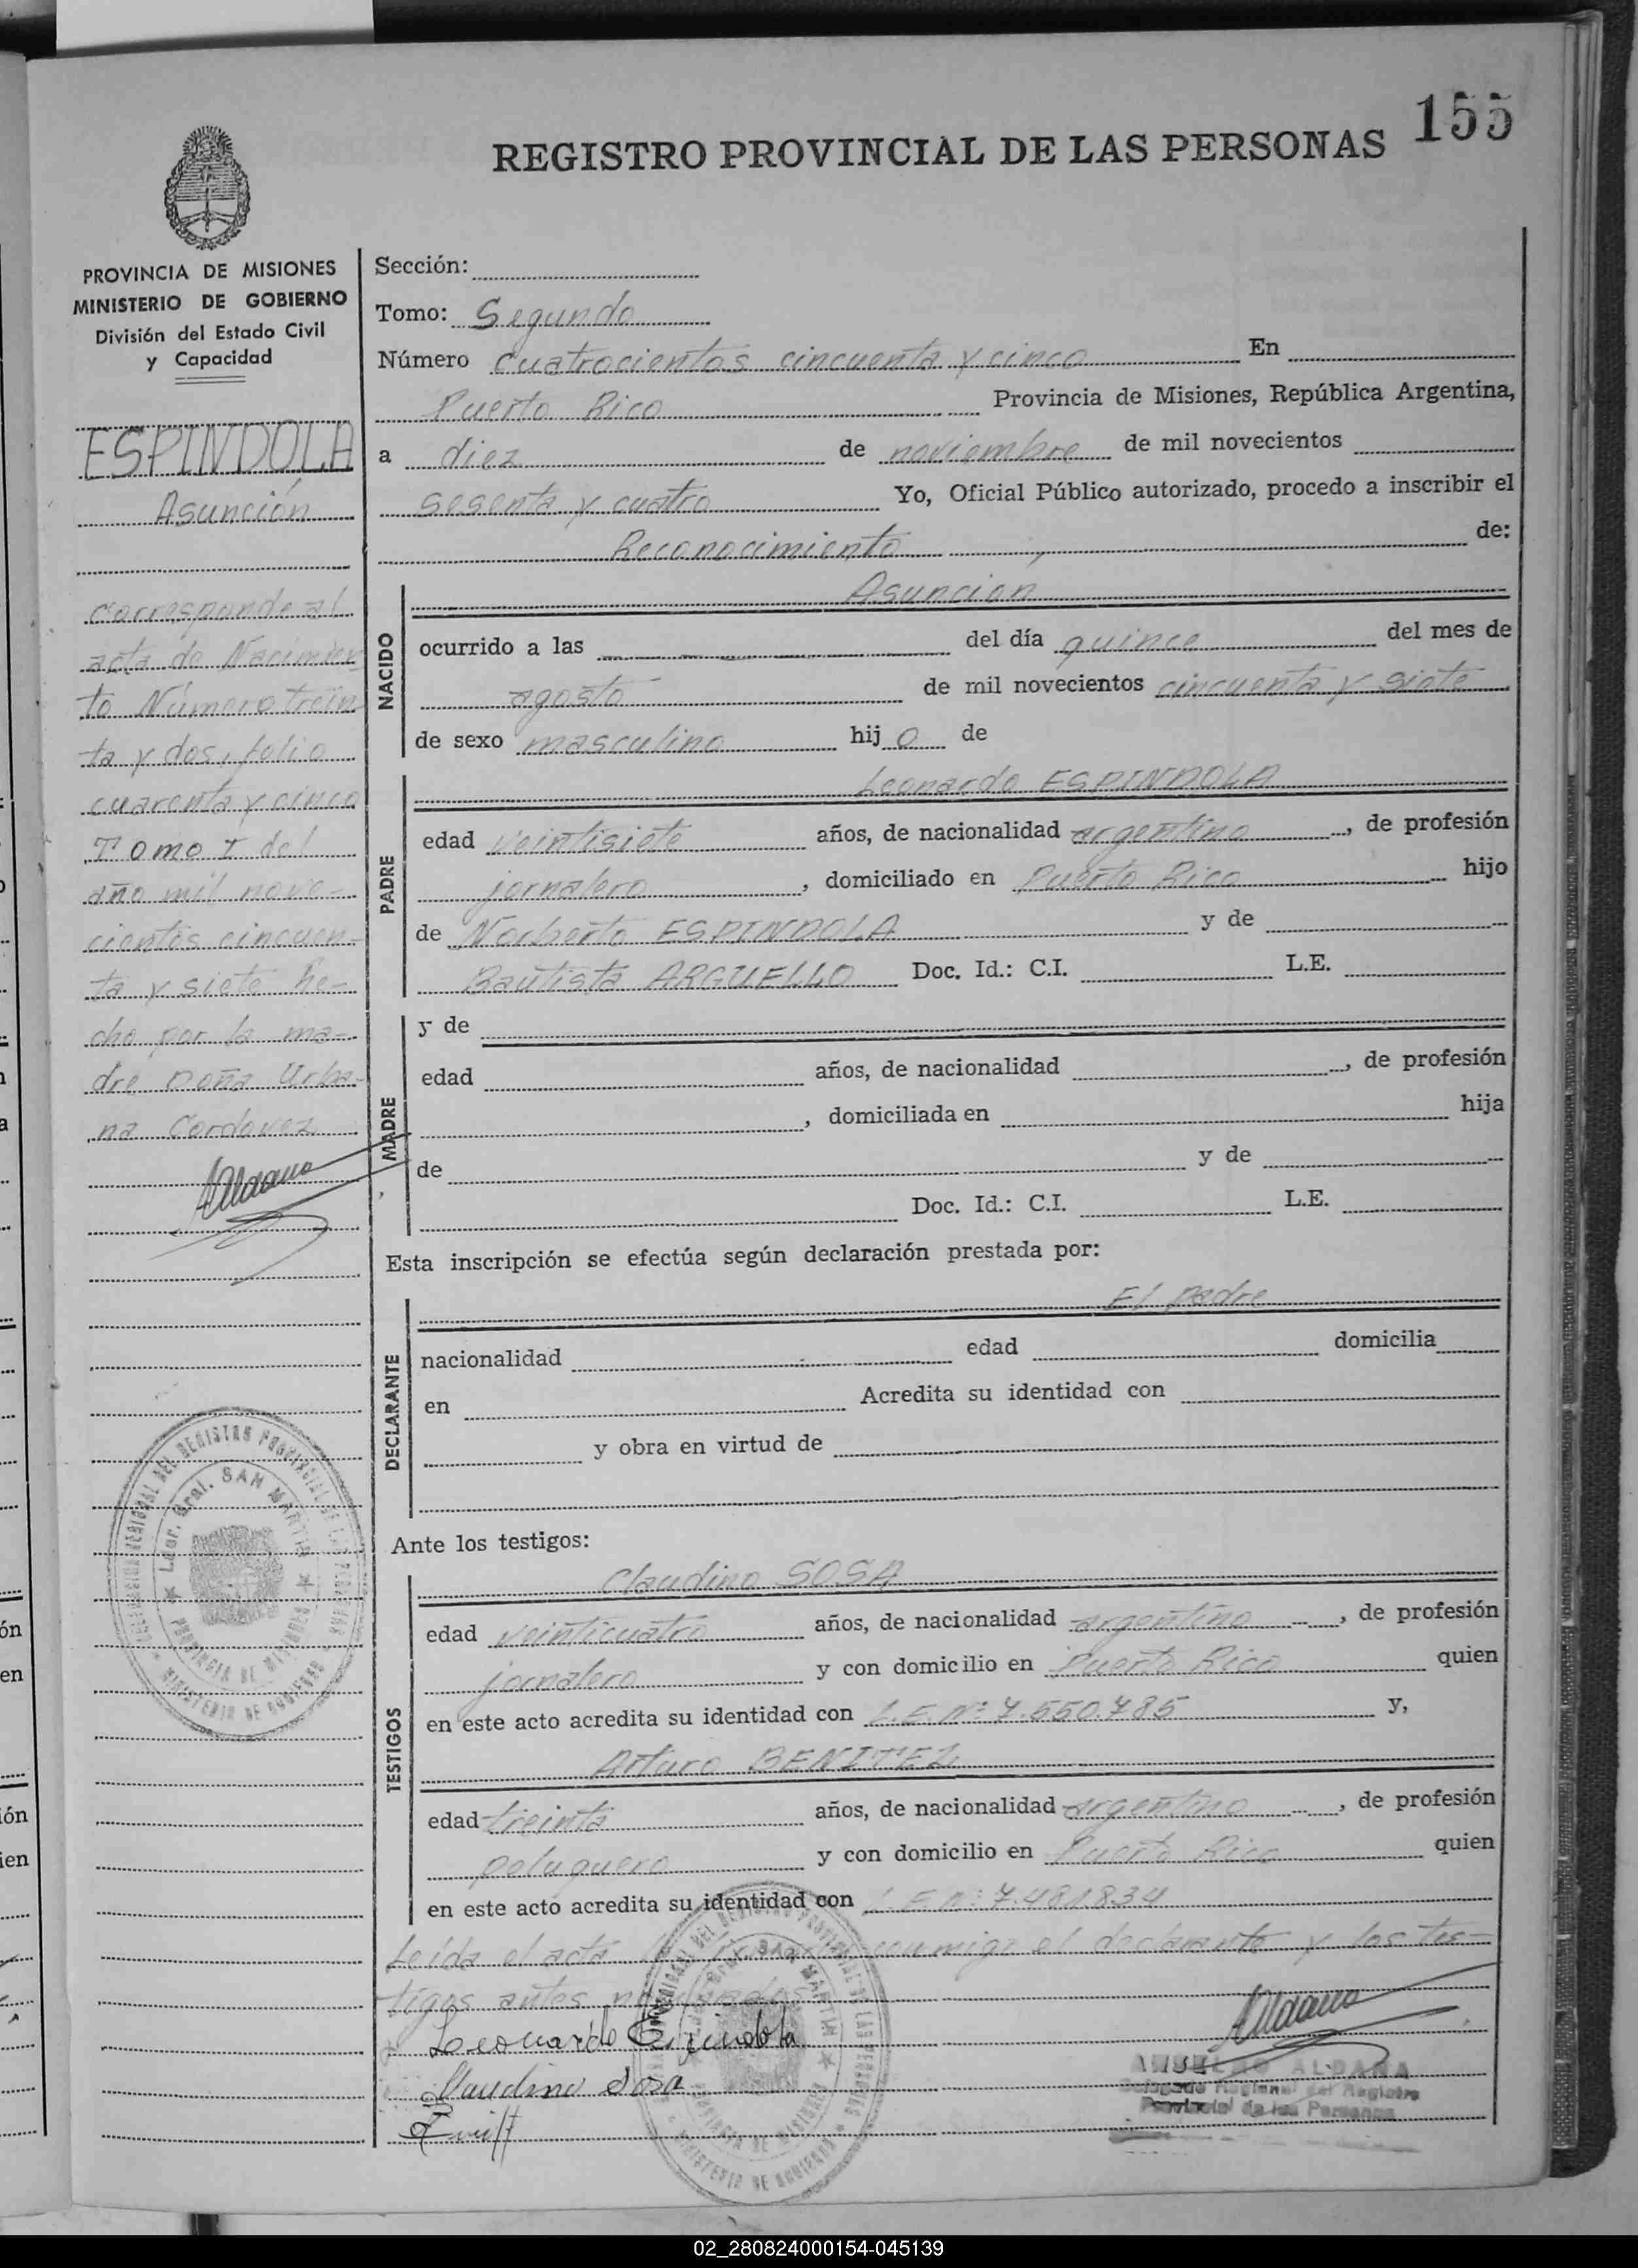 155
REGISTRO PROVINCIAL DE LAS PERSONAS
PROVINCIA DE MISIONES
MINISTERIO DE GOBIERNO
División del Estado Civil
y Capacidad
ESPINDOLA
Asunción
corresponde al
acta de Nacimien
to Número trein
ta y dos, folio
cuarenta y cinco
Tomo I del
año mil nove-
cientos cincuen-
ta y siete he-
cho por la ma-
dre Doña Urba-
na Cordovez
Aldana
Sección:
Tomo: Segundo
Número cuatrocientos cincuenta y cinco En
Puerto Rico Provincia de Misiones, República Argentina,
a diez de noviembre de mil novecientos
sesenta y cuatro Yo, Oficial Público autorizado, procedo a inscribir el
Reconocimiento de:
NACIDO
Asuncion
ocurrido a las del día quince del mes de
agosto de mil novecientos cincuenta y siete
de sexo masculino hijo de
PADRE
Leonardo ESPINDOLA
edad veintisiete años, de nacionalidad argentino, de profesión
jornalero, domiciliado en Puerto Rico hijo
de Norberto ESPINDOLA y de
Bautista ARGUELLO Doc. Id.: C.I. L.E.
MADRE
y de
edad años, de nacionalidad , de profesión
, domiciliada en hija
de y de
Doc. Id.: C.I. L.E.
Esta inscripción se efectúa según declaración prestada por:
DECLARANTE
El padre
nacionalidad edad domicilia
en Acredita su identidad con
y obra en virtud de
Ante los testigos:
TESTIGOS
Claudino SOSA
edad veinticuatro años, de nacionalidad argentino, de profesión
jornalero y con domicilio en Puerto Rico quien
en este acto acredita su identidad con L.E. Nº 7.550.785 y,
Arturo BENITEZ
edad treinta años, de nacionalidad argentino, de profesión
peluquero y con domicilio en Puerto Rico quien
en este acto acredita su identidad con L.E. Nº 7.481.834
Leída el acta conmigo el declarante y los tes-
tigos antes
Leonardo Espindola
Claudino Sosa
Aldana
ANSELMO ALDANA
Delegado Regional del Registro
Provincial de las Personas
REGIONAL DEL REGISTRO PROVINCIAL DE LAS PERSONAS
Lbor. Gral. SAN MARTIN
PROVINCIA DE MISIONES
MINISTERIO DE GOBIERNO
02_280824000154-045139